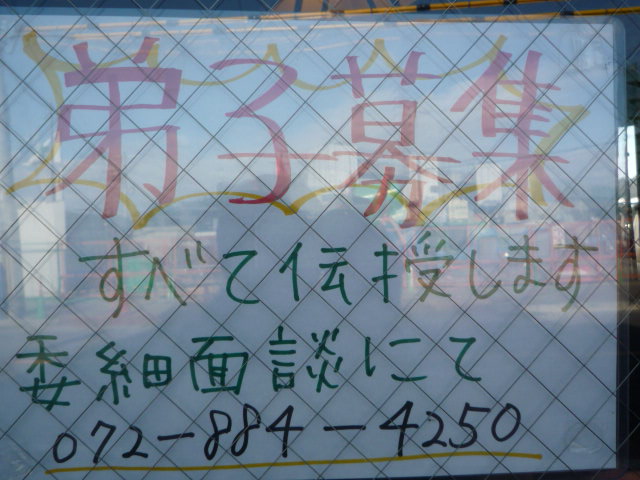 弟子募集
すべて伝授します
委細面談にて
072-884-4250